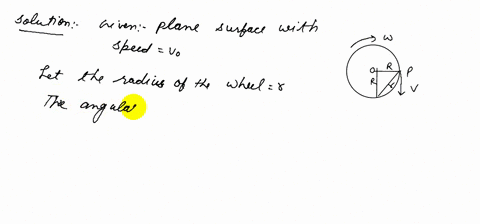 Solution:- Given:- plane surface with
speed = v₀
Let the radius of the wheel = r
The angular
ω
O R P
R r
V